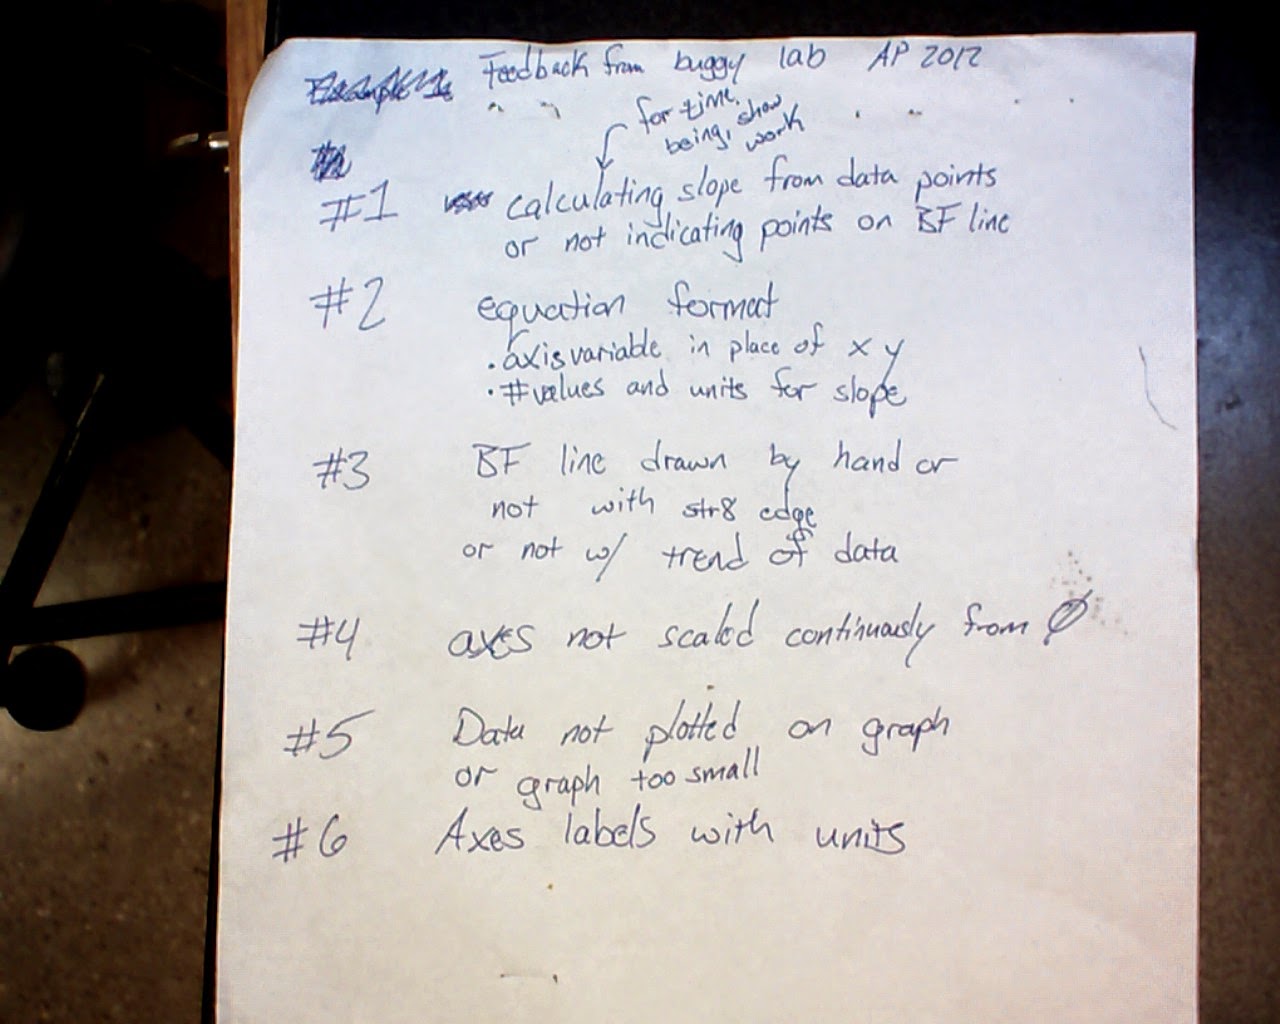 Feedback from buggy lab AP 2012
for time
being, show
work
#1 calculating slope from data points
or not indicating points on BF line
#2 equation format
• axis variable in place of x y
• # values and units for slope
#3 BF line drawn by hand or
not with str8 edge
or not w/ trend of data
#4 axes not scaled continuously from Ø
#5 Data not plotted on graph
or graph too small
#6 Axes labels with units